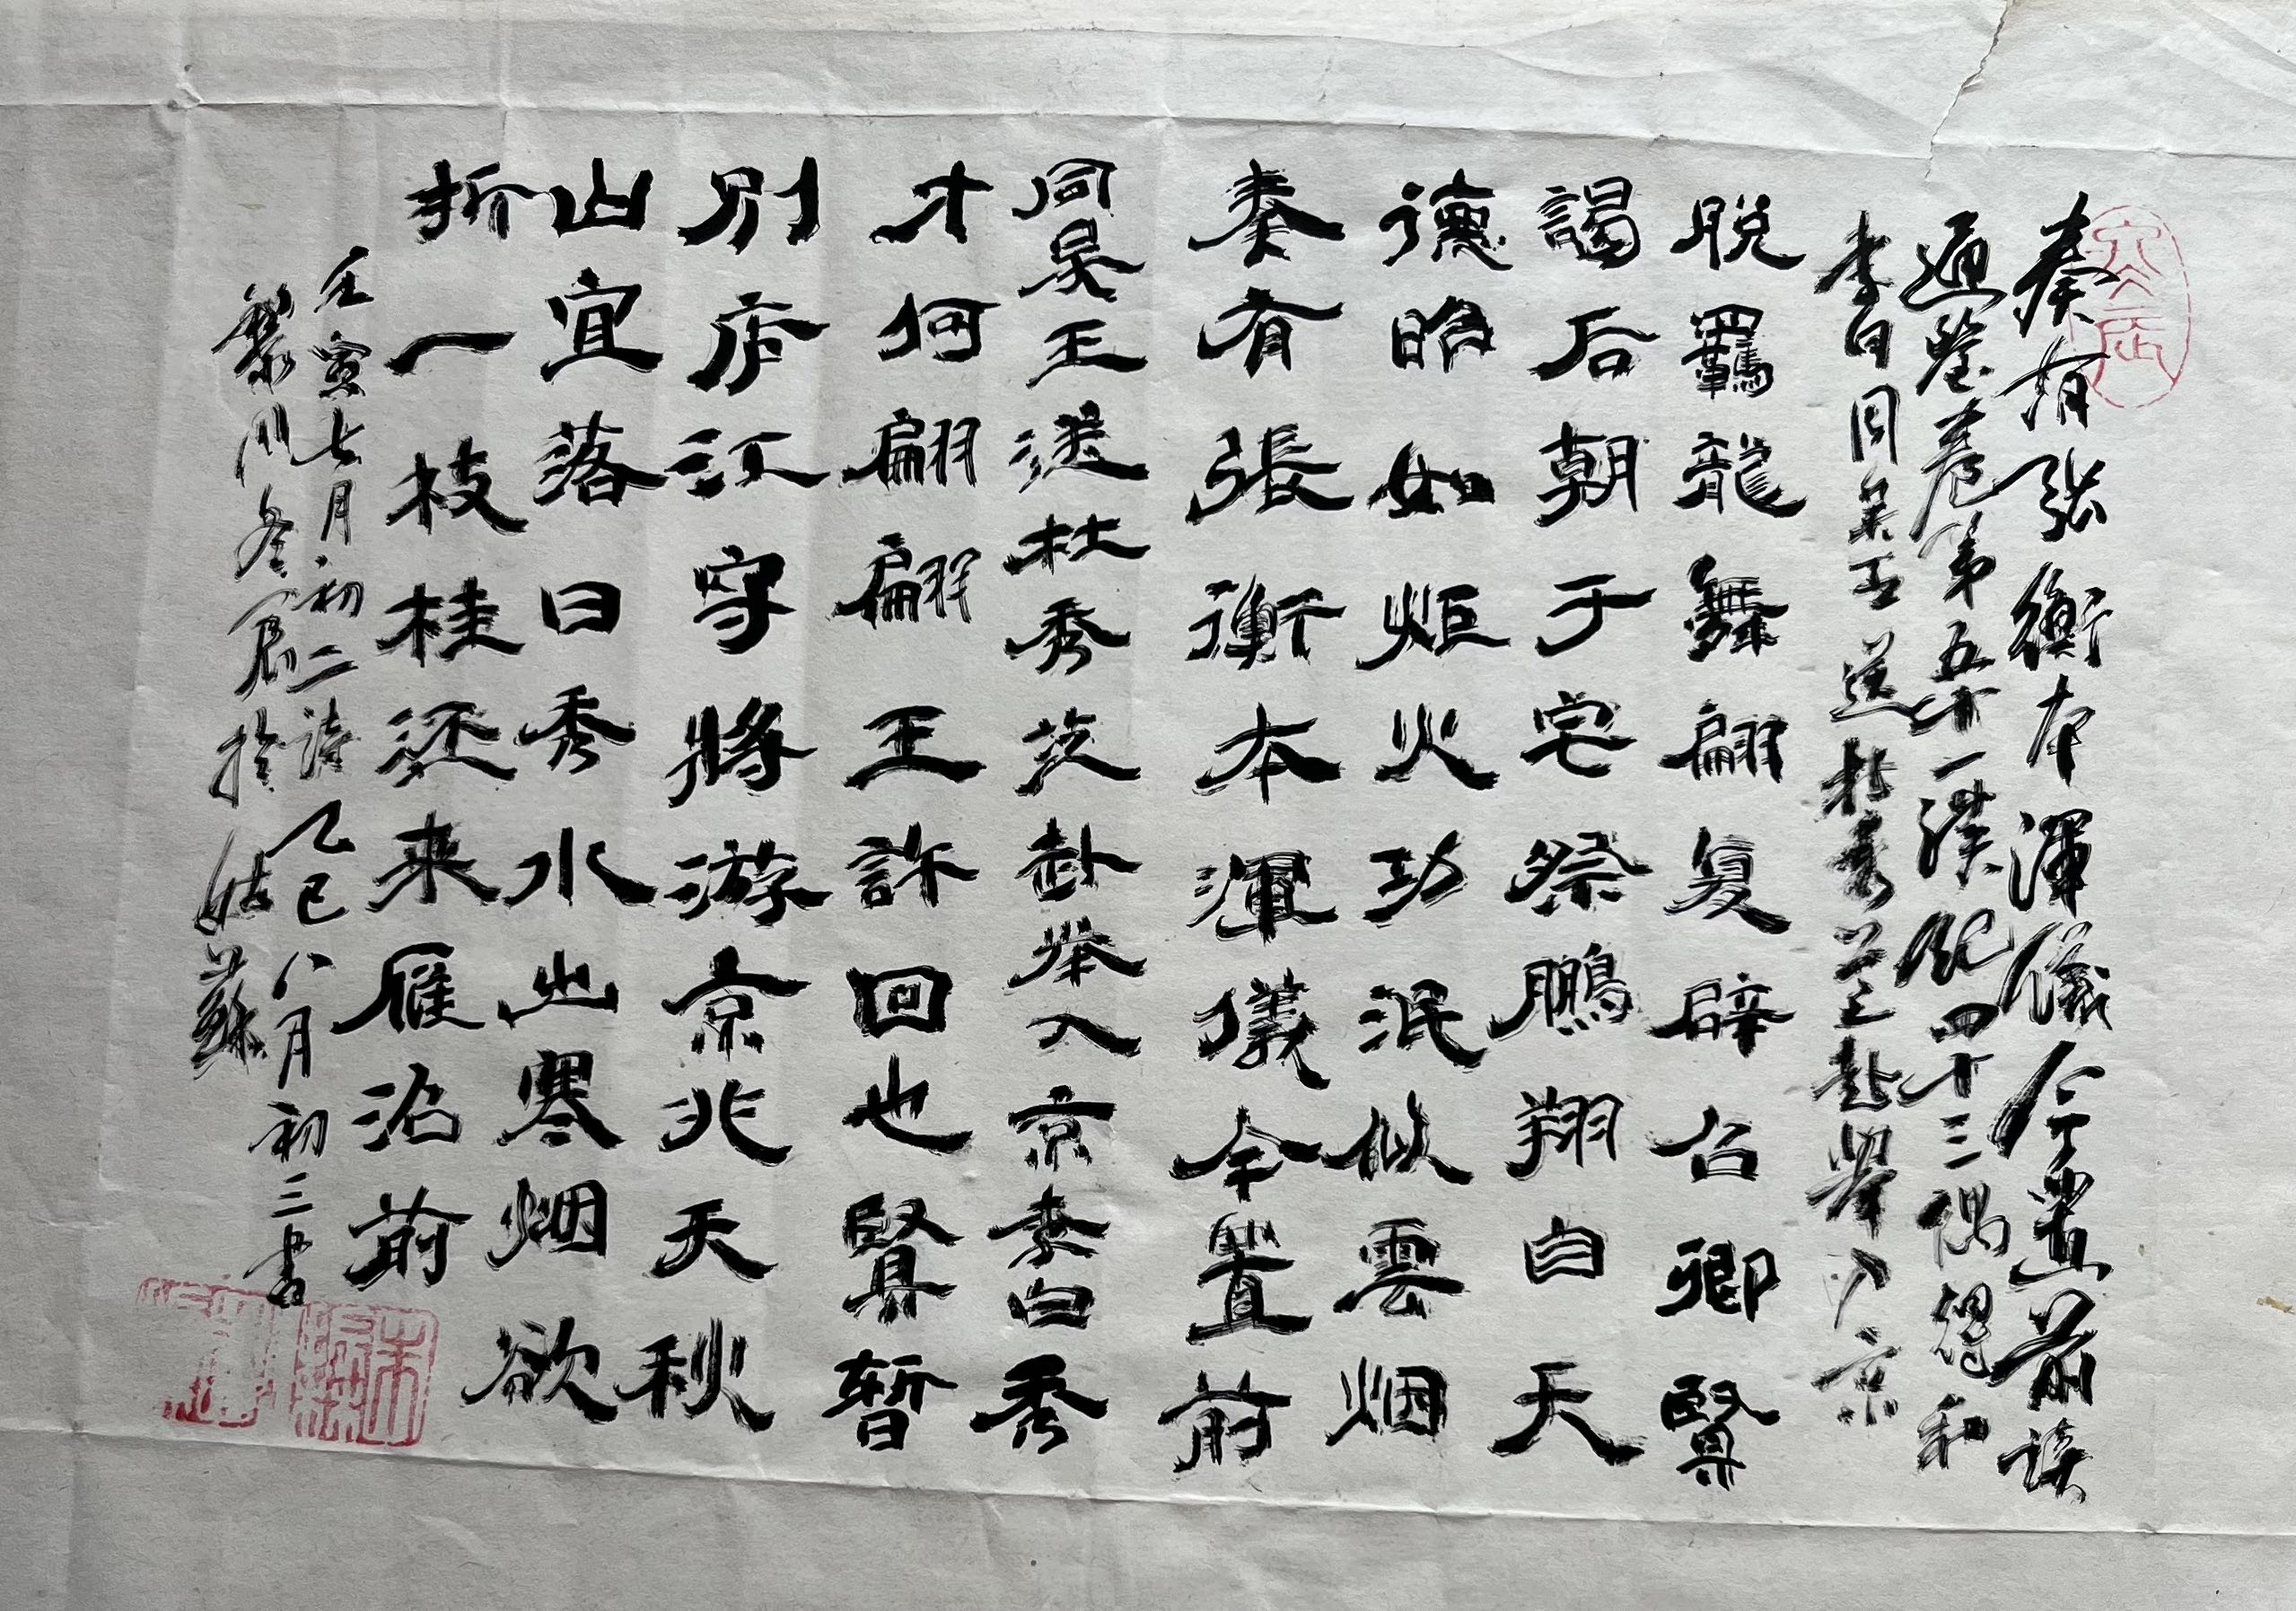 奏有張衡本渾儀今置前讀
通鑒卷第五十一漢紀四十三偶得和
李白同吳王送杜秀芝赴舉入京
脱羈龍舞翩复辟召卿賢
謁后朝于宅祭鵬翔自天
德昭如炬火功泯似雲烟
奏有張衡本渾儀今置前
同吴王送杜秀芝赴举入京李白秀
才何翩翩王許回也賢暂
別庐江守將游京兆天秋
山宜落日秀水出寒烟欲
折一枝桂还来雁沼前
壬寅七月初二詩乙巳八月初三書
於姑蘇